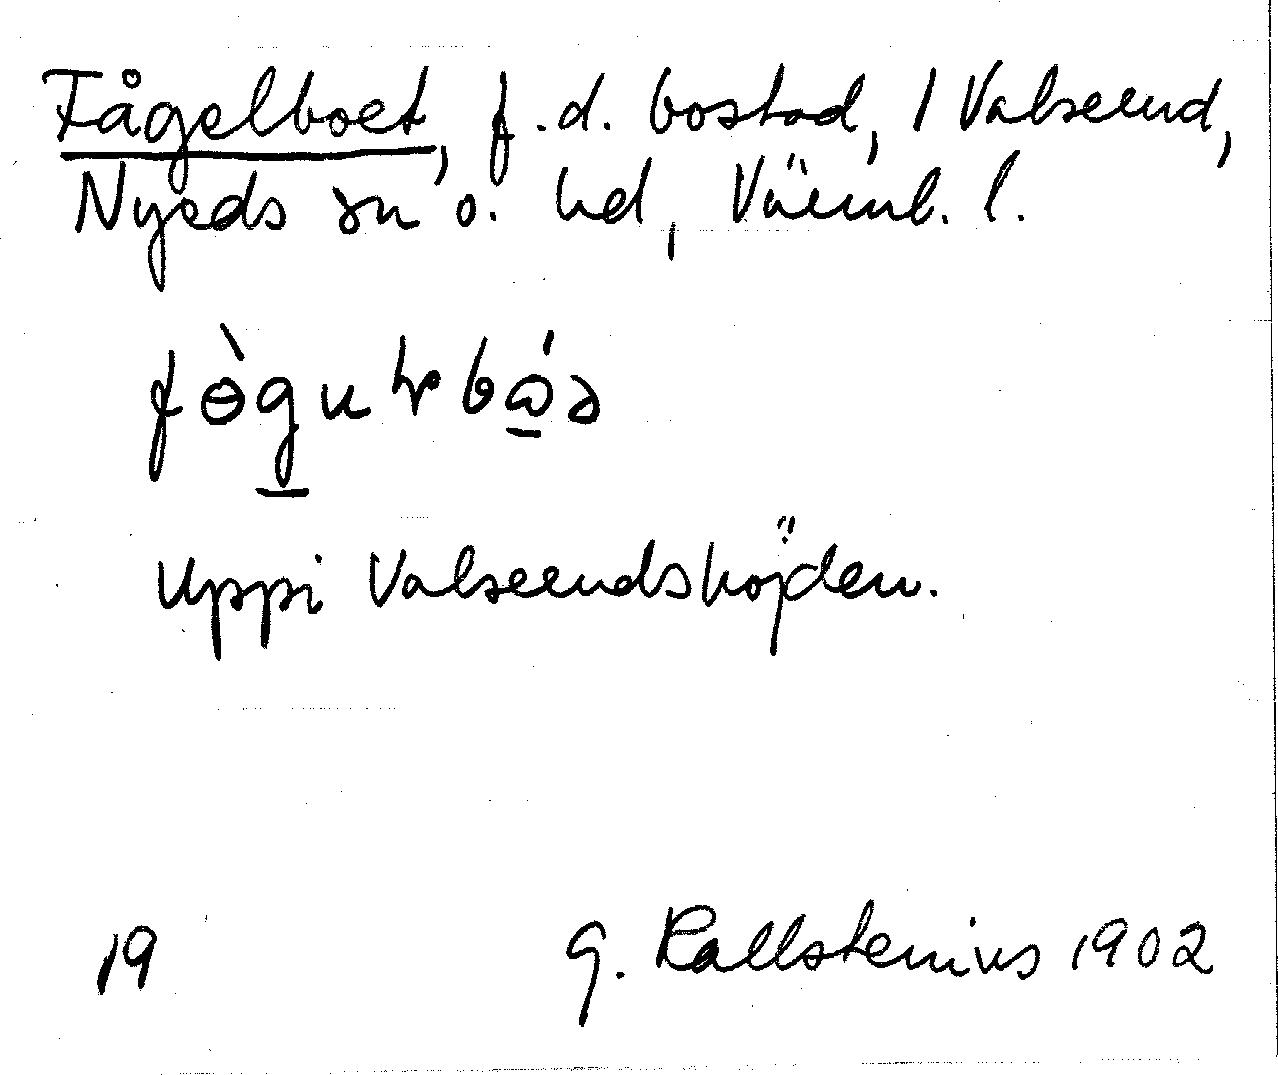 Fågelboet, f.d. bostad, 1 Valserud,
Nyeds sn o. hd, Värml. l.
fɵ̀guɫbɷ́ə
Uppi Valserudshöjden.
19 G. Kallstenius 1902